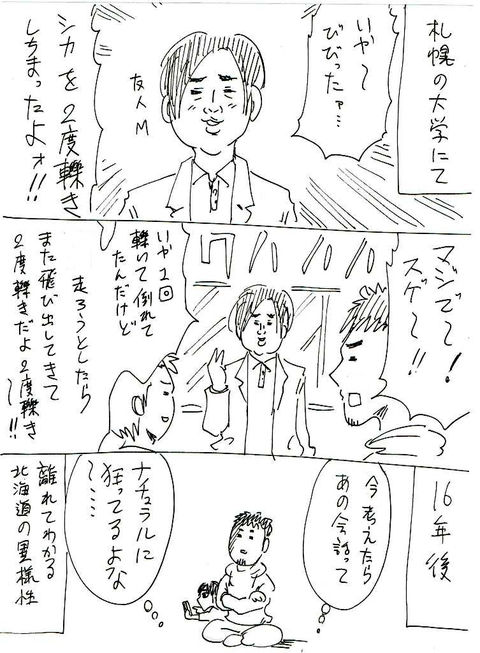 札幌の大学にて
いや〜
びびったァ…
友人M
シカを2度轢き
しちまったよォ!!
マジで〜!
スゲ〜!!
ワハハハ
いや1回
轢いて倒れて
たんだけど
走ろうとしたら
また飛び出してきて
2度轢きだよ2度轢き
〜!!
16年後
今考えたら
あの会話って
ナチュラルに
狂ってるよな
〜……
離れてわかる
北海道の異様性